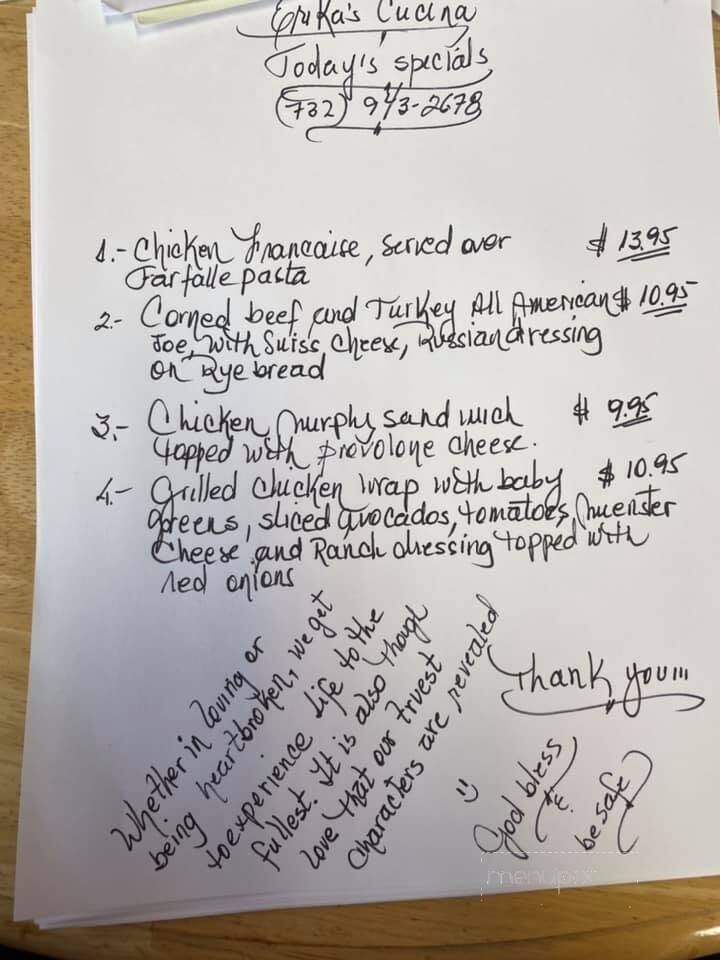 Erika's Cucina
Today's specials
(732) 913-2678
1.- Chicken Francaise, served over $ 13.95
Farfalle pasta
2.- Corned beef and Turkey All American $ 10.95
Joe, with Suiss Cheese, Russian dressing
on Rye bread
3.- Chicken murphy sandwich $ 9.95
topped with provolone cheese.
4.- Grilled chicken wrap with baby $ 10.95
greens, sliced avocados, tomatoes, muenster
Cheese and Ranch dressing topped with
red onions
Whether in loving or
being heartbroken, we get
to experience life to the
fullest. It is also though
love that our truest
characters are revealed
Thank you!!!
God bless
&
be safe
menupix